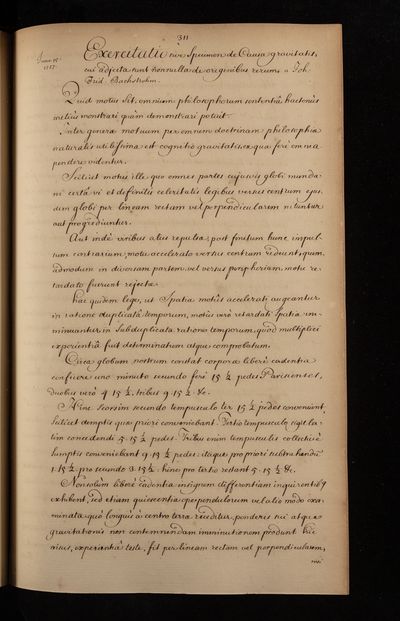 311
Exercitatio sive Specimen de Causa gravitatis,
cui adjecta sunt nonnulla de originibus rerum, a Joh.
Frid. Bachstrohm.
Quid motus sit, omnium philosophorum sententiâ hactenus
melius monstrari quàm demonstrari potuit.
Inter genera motuum per omnem doctrinam philosophiæ
naturalis utilissima est cognitio gravitatis, ex qua ferè omnia
pendere videntur.
Scilicet motus ille, quo omnes partes cujusvis globi munda-
ni certâ vi et definitis celeritatis legibus versus centrum ejus-
dem globi per lineam rectam vel perpendicularem nituntur
aut progrediuntur.
Aut inde viribus aliis repulsæ, post finitum hunc impul-
sum contrarium, motu accelerato versus centrum redeunt, quem-
admodum in diversam partem vel versus peripheriam, motu re-
tardato fuerunt rejectæ.
hac quidem lege, ut Spatia motûs accelerati augeantur
in ratione duplicatâ temporum, motûs verò retardati Spatia im-
minuantur in Subduplicata ratione temporum, quod multiplici
experientiâ fuit determinatum atque comprobatum.
Circa globum nostrum constat corpora liberè cadentia
conficere uno minuto secundo ferè 15 ½ pedes Parisienses,
duobus verò 4 15 ½, tribus 9. 15 ½ &c.
Hinc seorsim secundo tempusculo ter 15 ½ pedes conveniunt,
scilicet demptis quæ priori conveniebant. Tertio tempusculo
tim concedendi 5. 15 ½ pedes. Tribus enim tempusculis collectivè
sumptis conveniebant 9. 15 ½ pedes: itaque pro priori subtrahendi
1. 15 ½ pro secundo 3. 15 ½, hinc pro tertio restant 5. 15 ½ &c.
Non solum liberè cadentia insignem differentiam inquirentibus
exhibent, sed etiam quiescentia
minata, quò longius à centro terræ receditur, ponderis sui atque
gravitationis non contemnendam imminutionem produnt. hic
nisus, experientiâ teste, fit per lineam rectam vel perpendicularem,